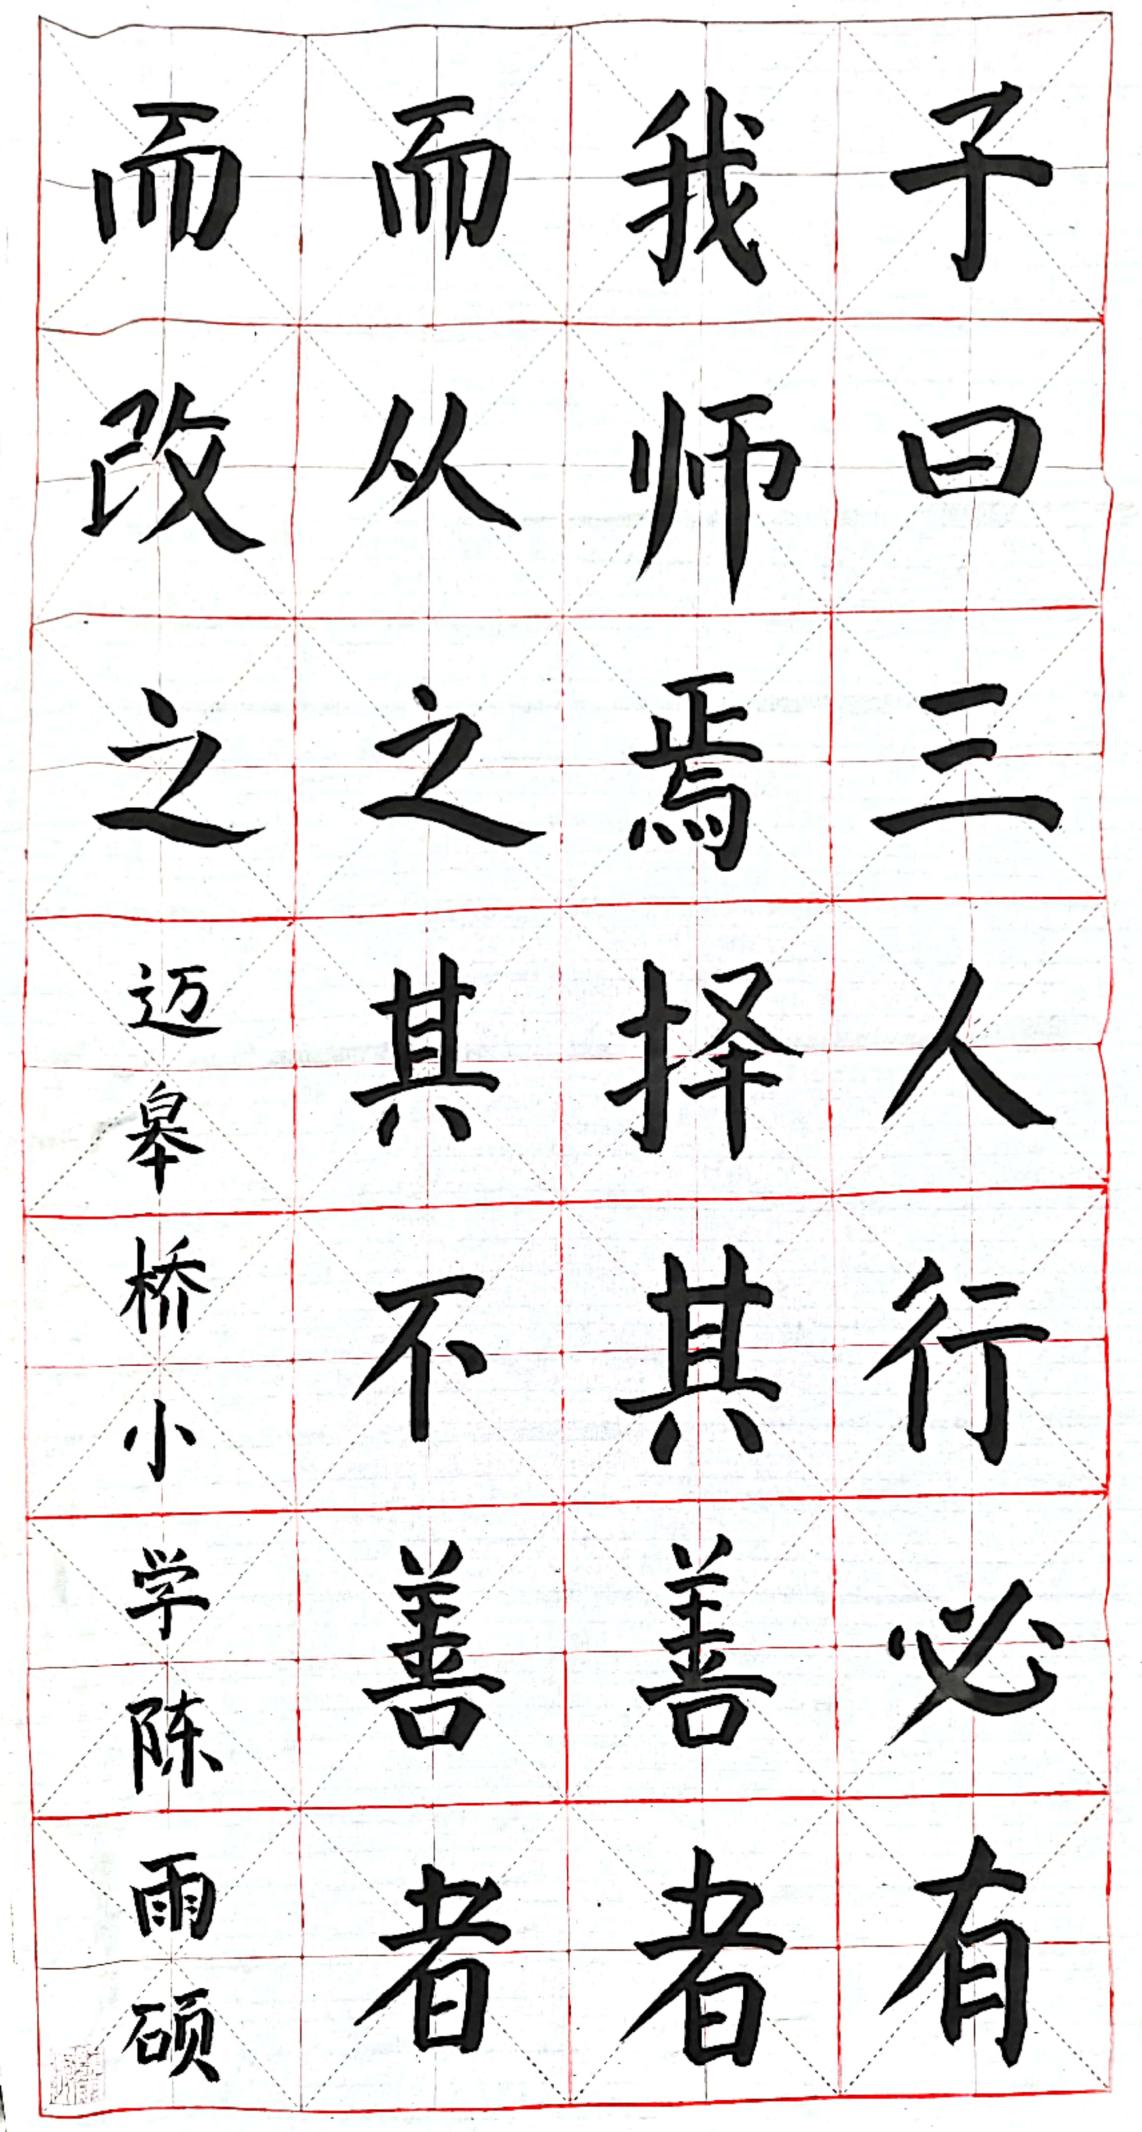 子曰三人行必有
我师焉择其善者
而从之其不善者
而改之迈皋桥小学陈雨硕